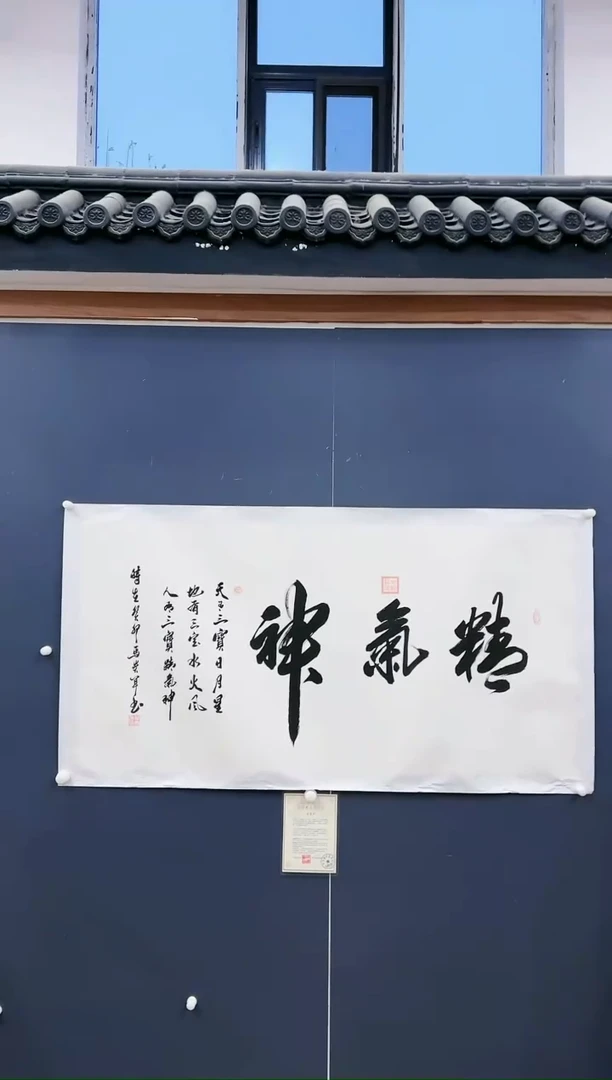 精氣神
天有三寶日月星
地有三宝水火风
人有三寶精氣神
時在癸卯馬
书